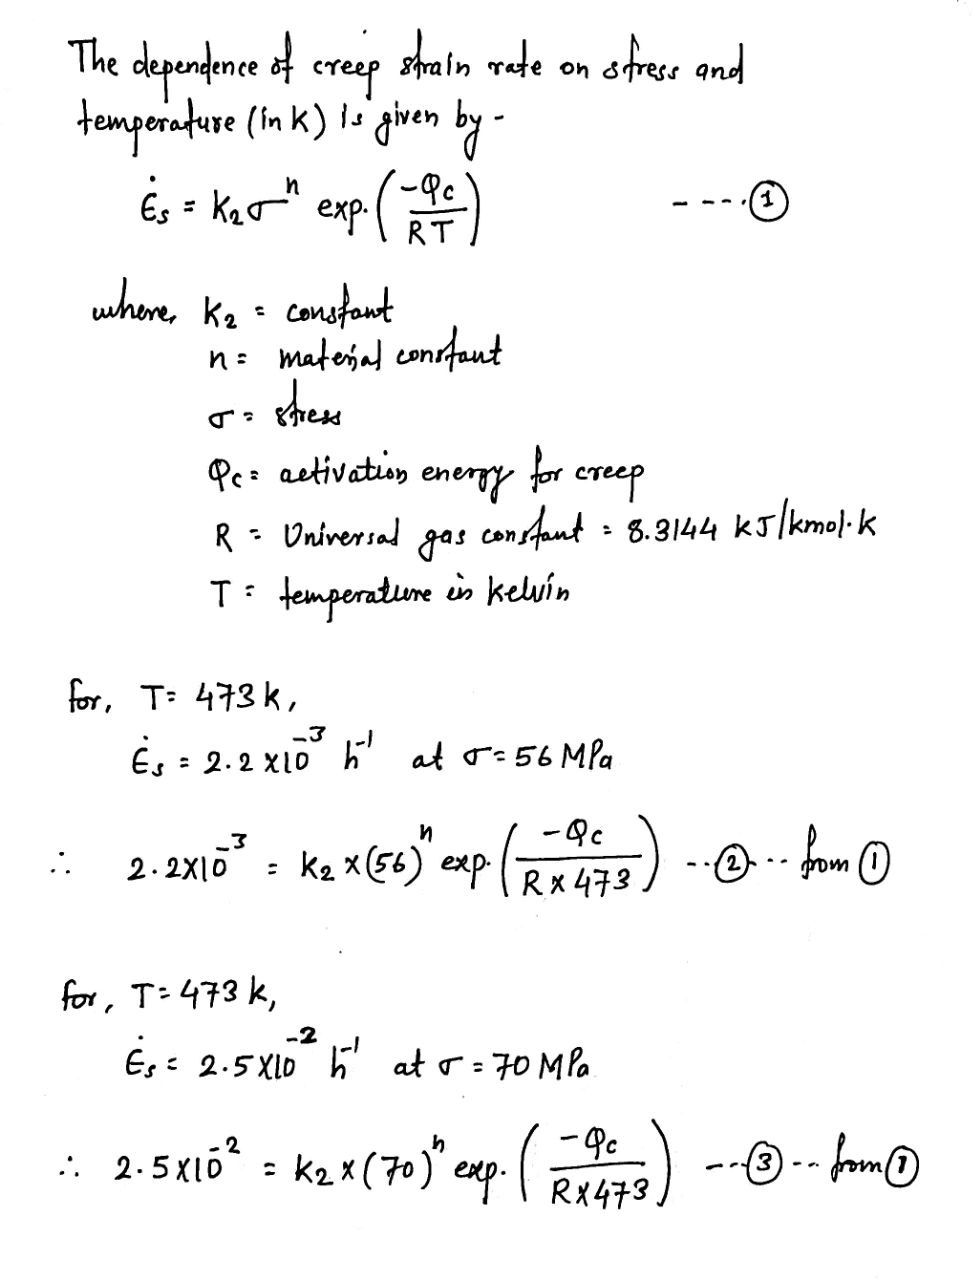 The dependence of creep strain rate on stress and
temperature (in K) is given by -
ε̇s = K₂σⁿ exp. (-Qc / RT) ----①
where, K₂ = constant
n = material constant
σ = stress
Qc = activation energy for creep
R = Universal gas constant = 8.3144 kJ/kmol·K
T = temperature in kelvin
for, T = 473 K,
ε̇s = 2.2 x10⁻³ h⁻¹ at σ = 56 MPa
∴ 2.2X10⁻³ = K₂ x (56)ⁿ exp. (-Qc / R x 473) --②-- from ①
for, T = 473 K,
ε̇s = 2.5 X10⁻² h⁻¹ at σ = 70 MPa
∴ 2.5X10⁻² = K₂ x (70)ⁿ exp. (-Qc / R x 473) ---③-- from ①